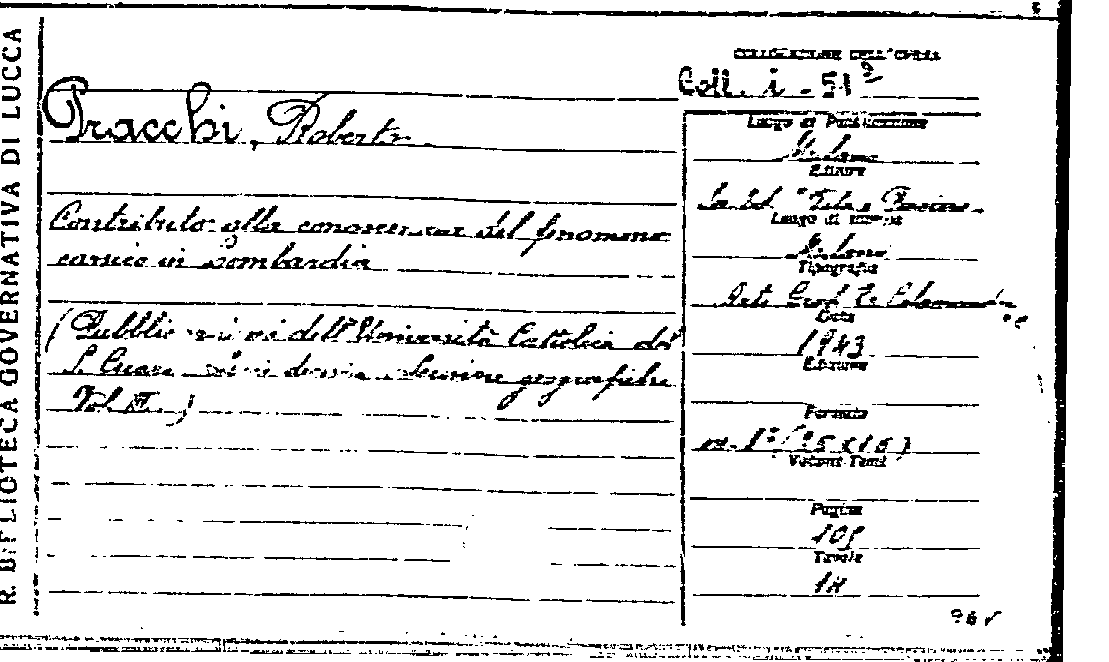 R. BIBLIOTECA GOVERNATIVA DI LUCCA
COLLOCAZIONE DELL'OPERA
Coll. i - 51²
Pracchi, Roberto
Contributo alla conoscenza del fenomeno
carsico in Lombardia
(Pubblicazioni dell'Università Cattolica del
S. Cuore serie decima Scienze geografiche
Vol. II.)
Luogo di Pubblicazione
Milano
Editore
Soc. Ed. "Vita e Pensiero"
Luogo di stampa
Milano
Tipografia
Arti Graf.
Data
1943
Edizione
Formato
in-8° (25 x 18)
Volumi Tomi
Pagine
Tavole